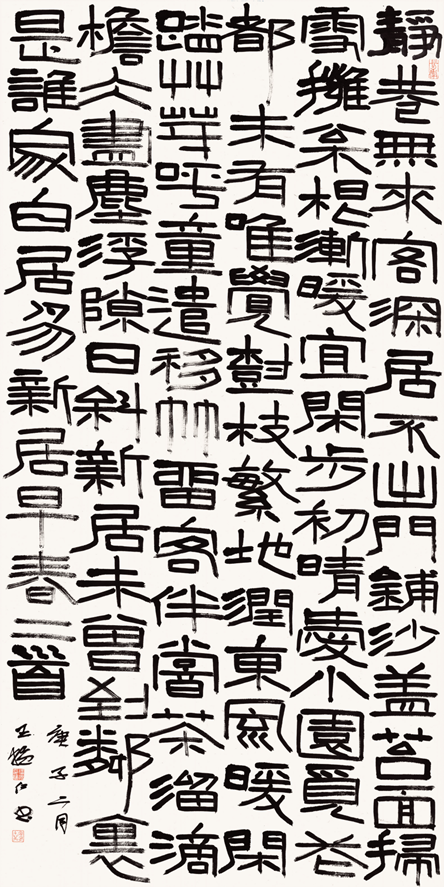 靜巷無來客深居不出門鋪沙蓋苔面掃
雪擁枀根漸暖宜閑步初晴愛小園覓花
都未有唯覺樹枝繁地潤東風暖閑
蹋艸芽呼童遣移竹留客伴嘗茶溜滴
檐仌盡塵浮隙日斜新居未曾到鄰裏
是誰家白居易新居早春二首
庚子二月
王鏞